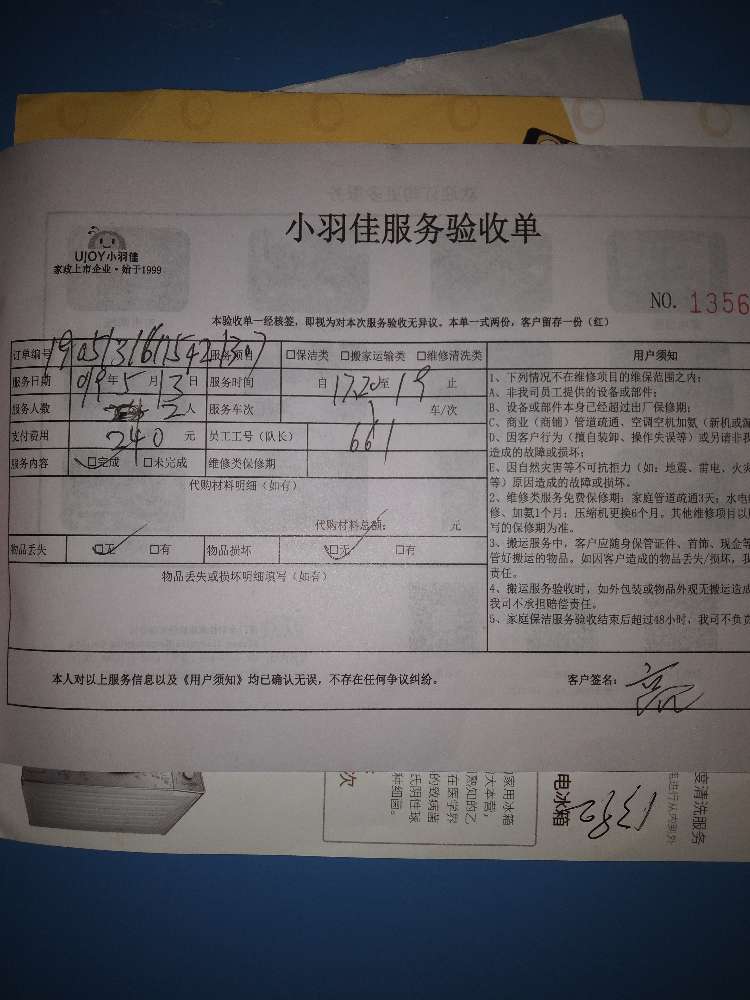 小羽佳服务验收单
UJOY小羽佳
家政上市企业·始于1999
NO. 1356
本验收单一经核签，即视为对本次服务验收无异议。本单一式两份，客户留存一份（红）
订单编号 服务项目 □保洁类 □搬家运输类 □维修清洗类
服务日期 019年5月13日 服务时间 自1720至19止
服务人数 2人 服务车次 车/次
支付费用 240元 员工工号（队长） 661
服务内容 □完成 □未完成 维修类保修期
代购材料明细（如有）
代购材料总额： 元
物品丢失 □无 □有 物品损坏 □无 □有
物品丢失或损坏明细填写（如有）
用户须知
1、下列情况不在维修项目的维保范围之内：
A、非我司员工提供的设备或部件；
B、设备或部件本身已经超过出厂保修期；
C、商业（商铺）管道疏通、空调空机加氨（新机或漏
D、因客户行为（擅自装卸、操作失误等）或另请非我
造成的故障或损坏；
E、因自然灾害等不可抗拒力（如：地震、雷电、火灾
等）原因造成的故障或损坏。
2、维修类服务免费保修期：家庭管道疏通3天；水电
修、加氨1个月；压缩机更换6个月。其他维修项目以
写的保修期为准。
3、搬运服务中，客户应随身保管证件、首饰、现金等
管好搬运的物品。如因客户造成的物品丢失/损坏，我
责任。
4、搬运服务验收时，如外包装或物品外观无搬运造成
我司不承担赔偿责任。
5、家庭保洁服务验收结束后超过48小时，我司不负责
本人对以上服务信息以及《用户须知》均已确认无误，不存在任何争议纠纷。
客户签名：
度清洗服务
电冰箱
家用冰箱
大本营，
熟知的乙
在医学界
的致病菌
氏阴性球
种细菌。
次